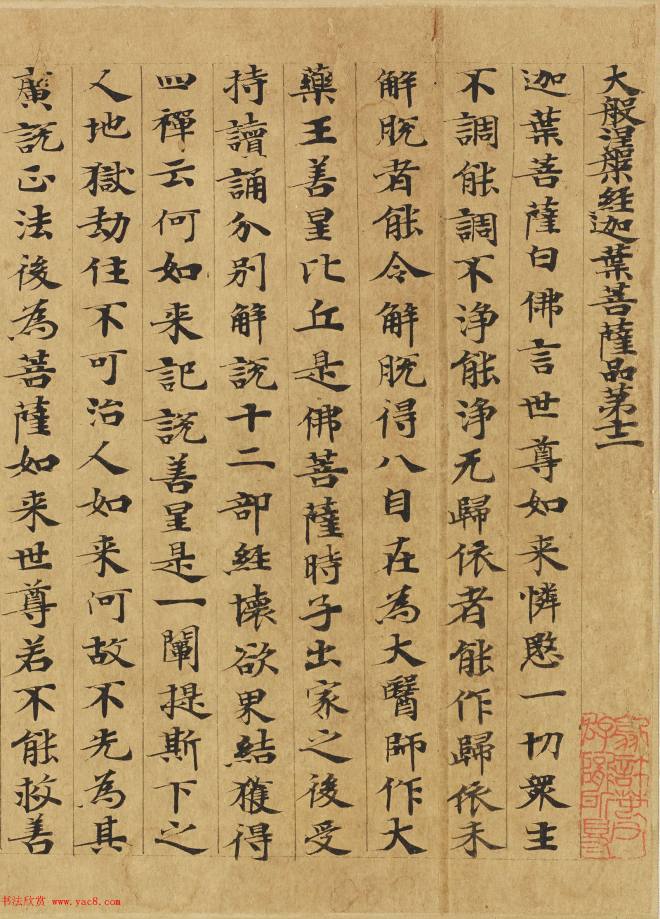 大般涅槃經迦葉菩薩品第十二
迦葉菩薩白佛言世尊如来憐愍一切眾生
不調能調不浄能浄无歸依者能作歸依未
解脱者能令解脱得八自在為大醫師作大
藥王善星比丘是佛菩薩時子出家之後受
持讀誦分別解説十二部經壞欲界結獲得
四禪云何如来記説善星是一闡提斯下之
人地獄劫住不可治人如来何故不先為其
廣説正法後為菩薩如来世尊若不能救善
书法欣赏 www.yac8.com